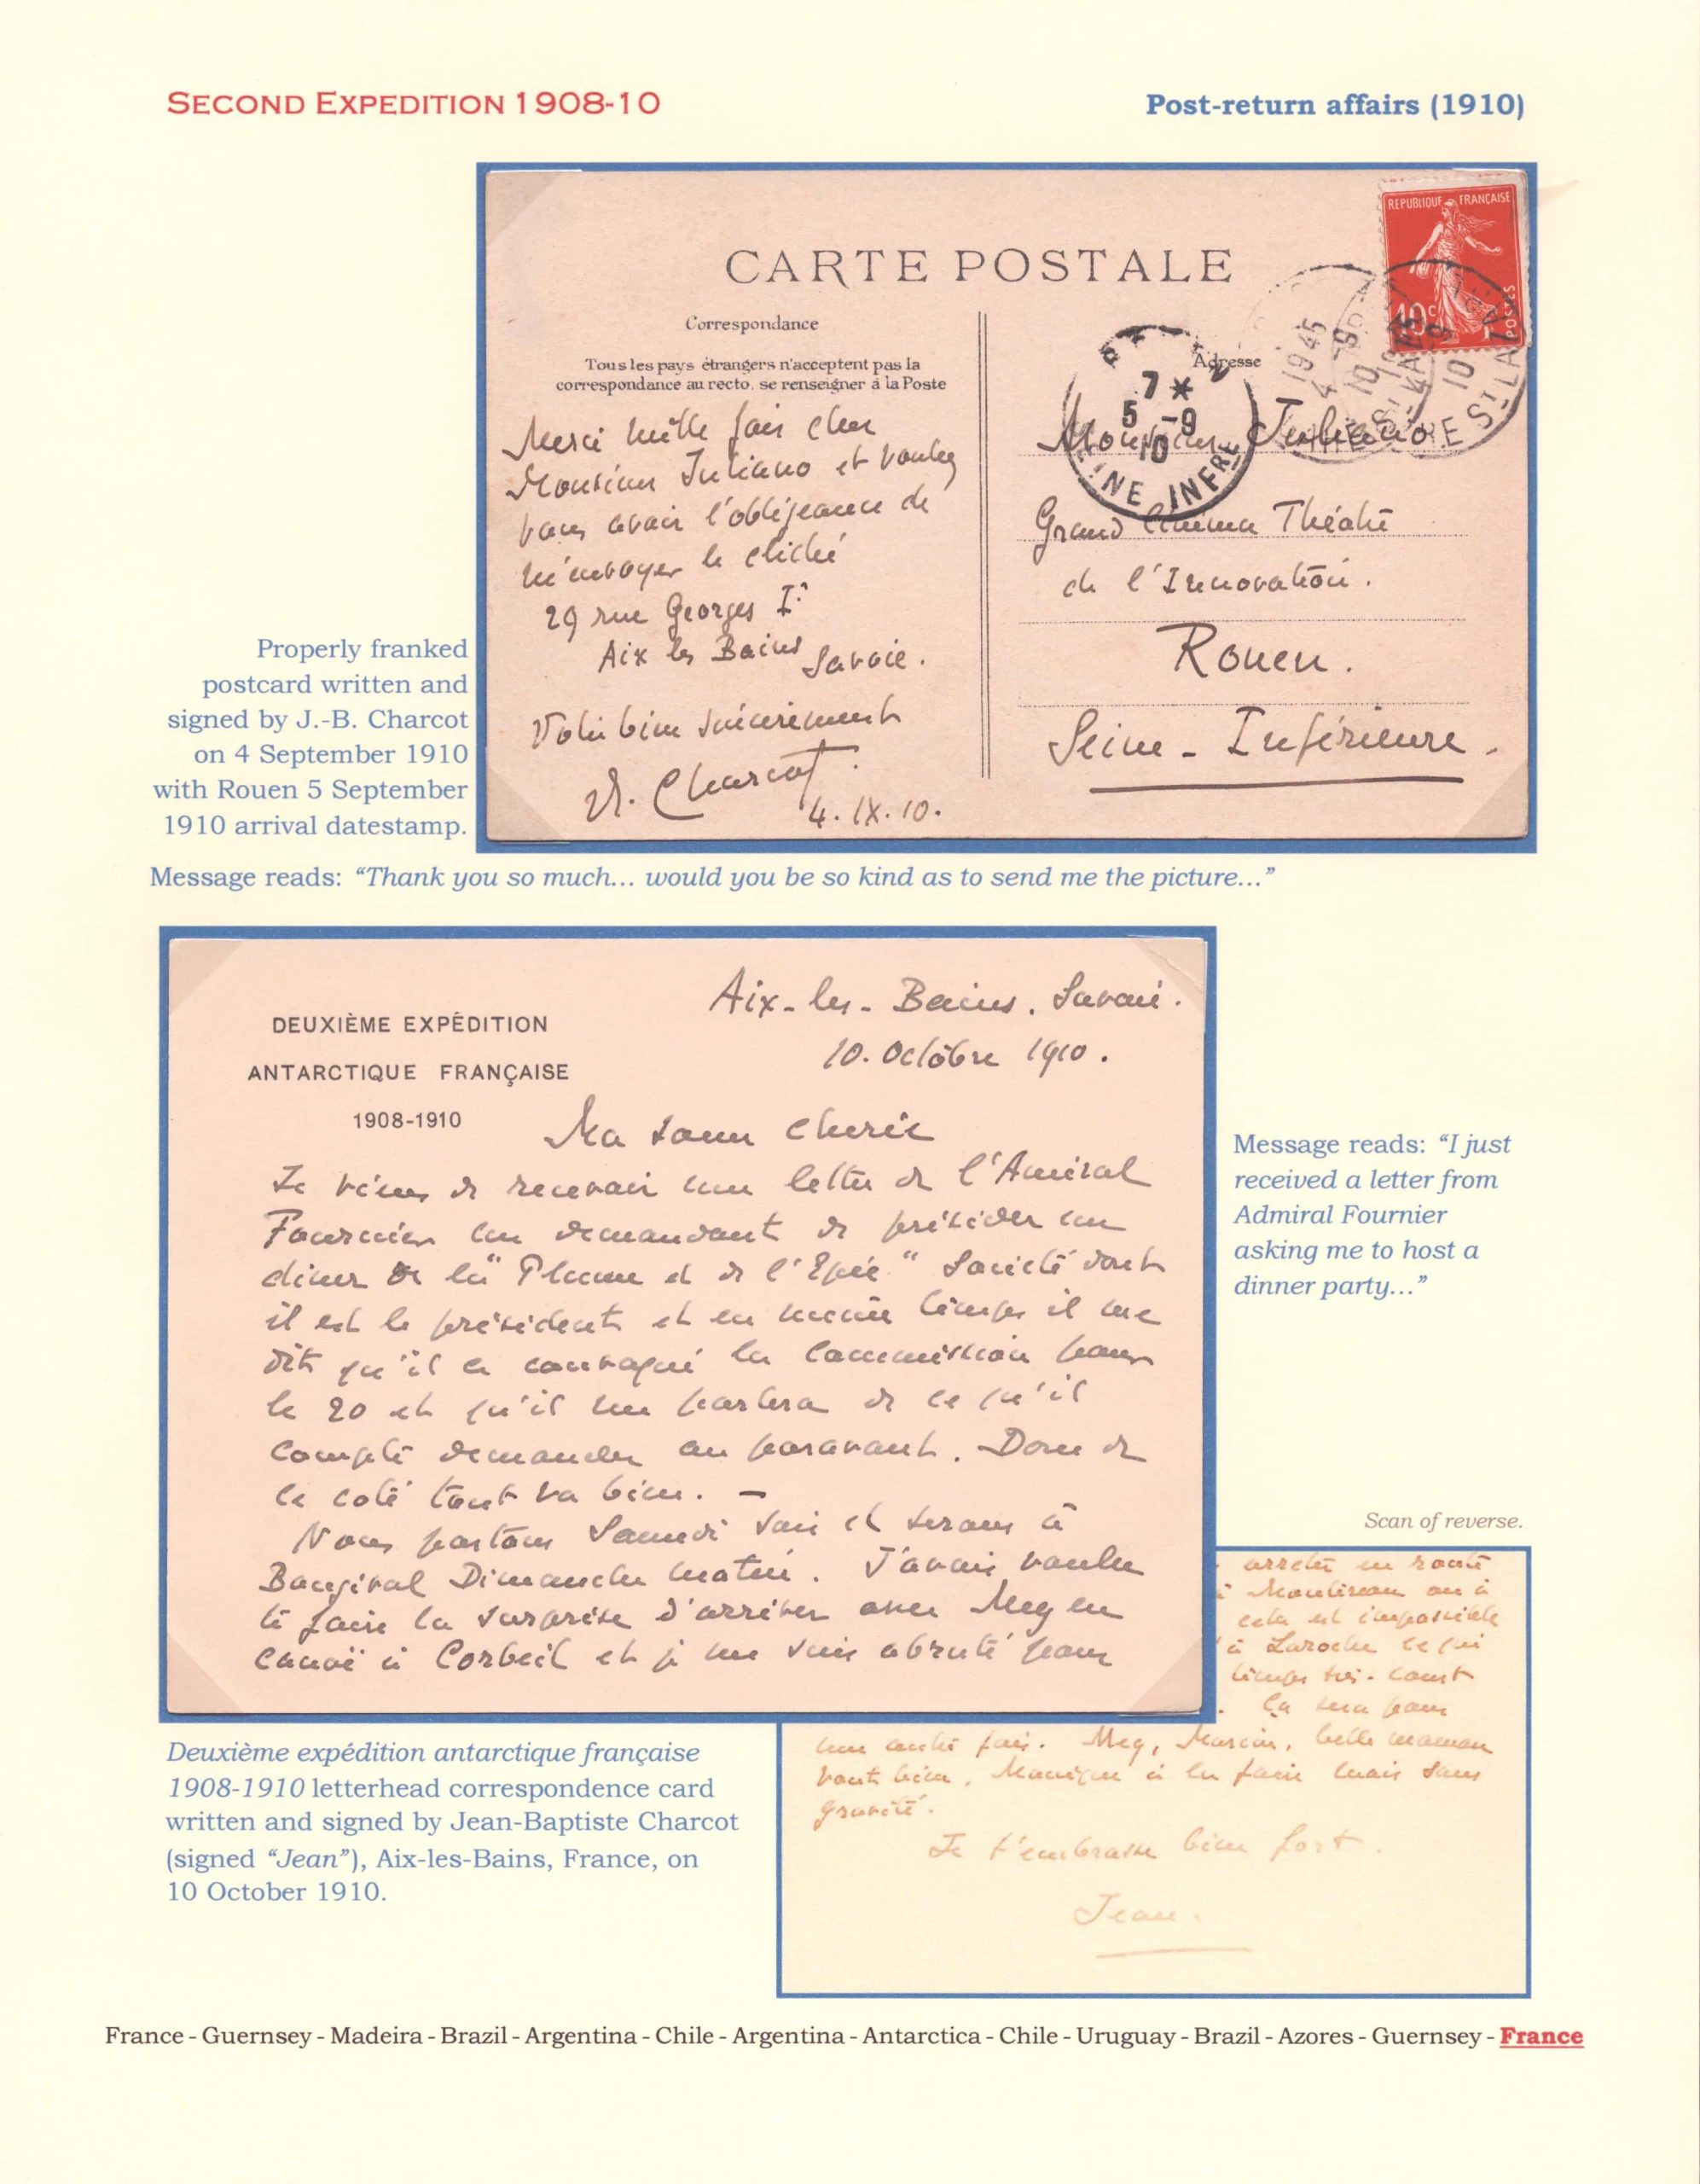 SECOND EXPEDITION 1908-10
Post-return affairs (1910)
REPUBLIQUE FRANÇAISE
10c
POSTES
CARTE POSTALE
Correspondance
Tous les pays étrangers n'acceptent pas la
correspondance au recto, se renseigner à la Poste
Merci mille fois cher
Monsieur Juliano et voulez
vous avoir l'obligeance de
m'envoyer le cliché
29 rue Georges Ier
Aix les Bains Savoie.
Votre bien sincèrement
J. Charcot.
4.IX.10.
Adresse
7*
5 -9
10
INE INFRE
Monsieur Juliano.
Grand Cinéma Théatre
de l'Innovation.
Rouen.
Seine-Inférieure.
Properly franked
postcard written and
signed by J.-B. Charcot
on 4 September 1910
with Rouen 5 September
1910 arrival datestamp.
Message reads: “Thank you so much... would you be so kind as to send me the picture...”
DEUXIÈME EXPÉDITION
ANTARCTIQUE FRANÇAISE
1908-1910
Aix-les-Bains. Savoie.
10. Octobre 1910.
Ma soeur cherie
Je viens de recevoir une lettre de l'Amiral
Fournier me demandant de présider un
diner de la "Plume et de l'Epée" Société dont
il est le président et en même temps il me
dit qu'il a convoqué la Commission pour
le 20 et qu'il me parlera de ce qu'il
compte demander au paravant. Donc de
ce coté tout va bien. —
Nous partons Samedi soir et serons à
Bougival Dimanche matin. J'avais voulu
te faire la surprise d'arriver avec Meg en
canoë à Corbeil et je me suis abruti pour
Message reads: “I just
received a letter from
Admiral Fournier
asking me to host a
dinner party...”
Scan of reverse.
arreter en route
Montereau ou à
cela est impossible
à Laroche ce qui
temps trop court
. Ca sera pour
une autre fois. Meg, Marion, belle maman
vont bien, Monique a le foie mais sans
gravité.
Je t'embrasse bien fort.
Jean.
Deuxième expédition antarctique française
1908-1910 letterhead correspondence card
written and signed by Jean-Baptiste Charcot
(signed “Jean”), Aix-les-Bains, France, on
10 October 1910.
France - Guernsey - Madeira - Brazil - Argentina - Chile - Argentina - Antarctica - Chile - Uruguay - Brazil - Azores - Guernsey - France